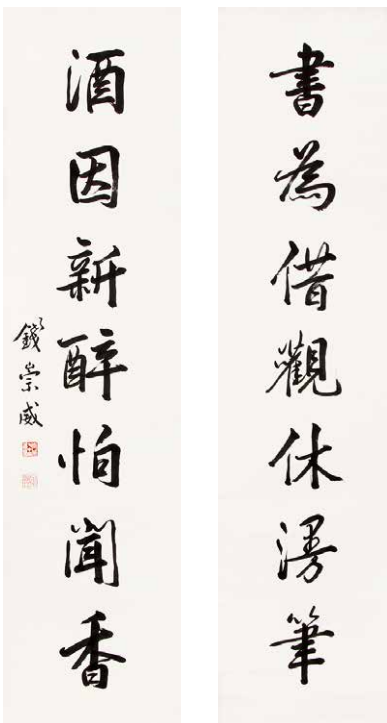 書為借觀休漫筆
酒因新醉怕聞香
錢崇威